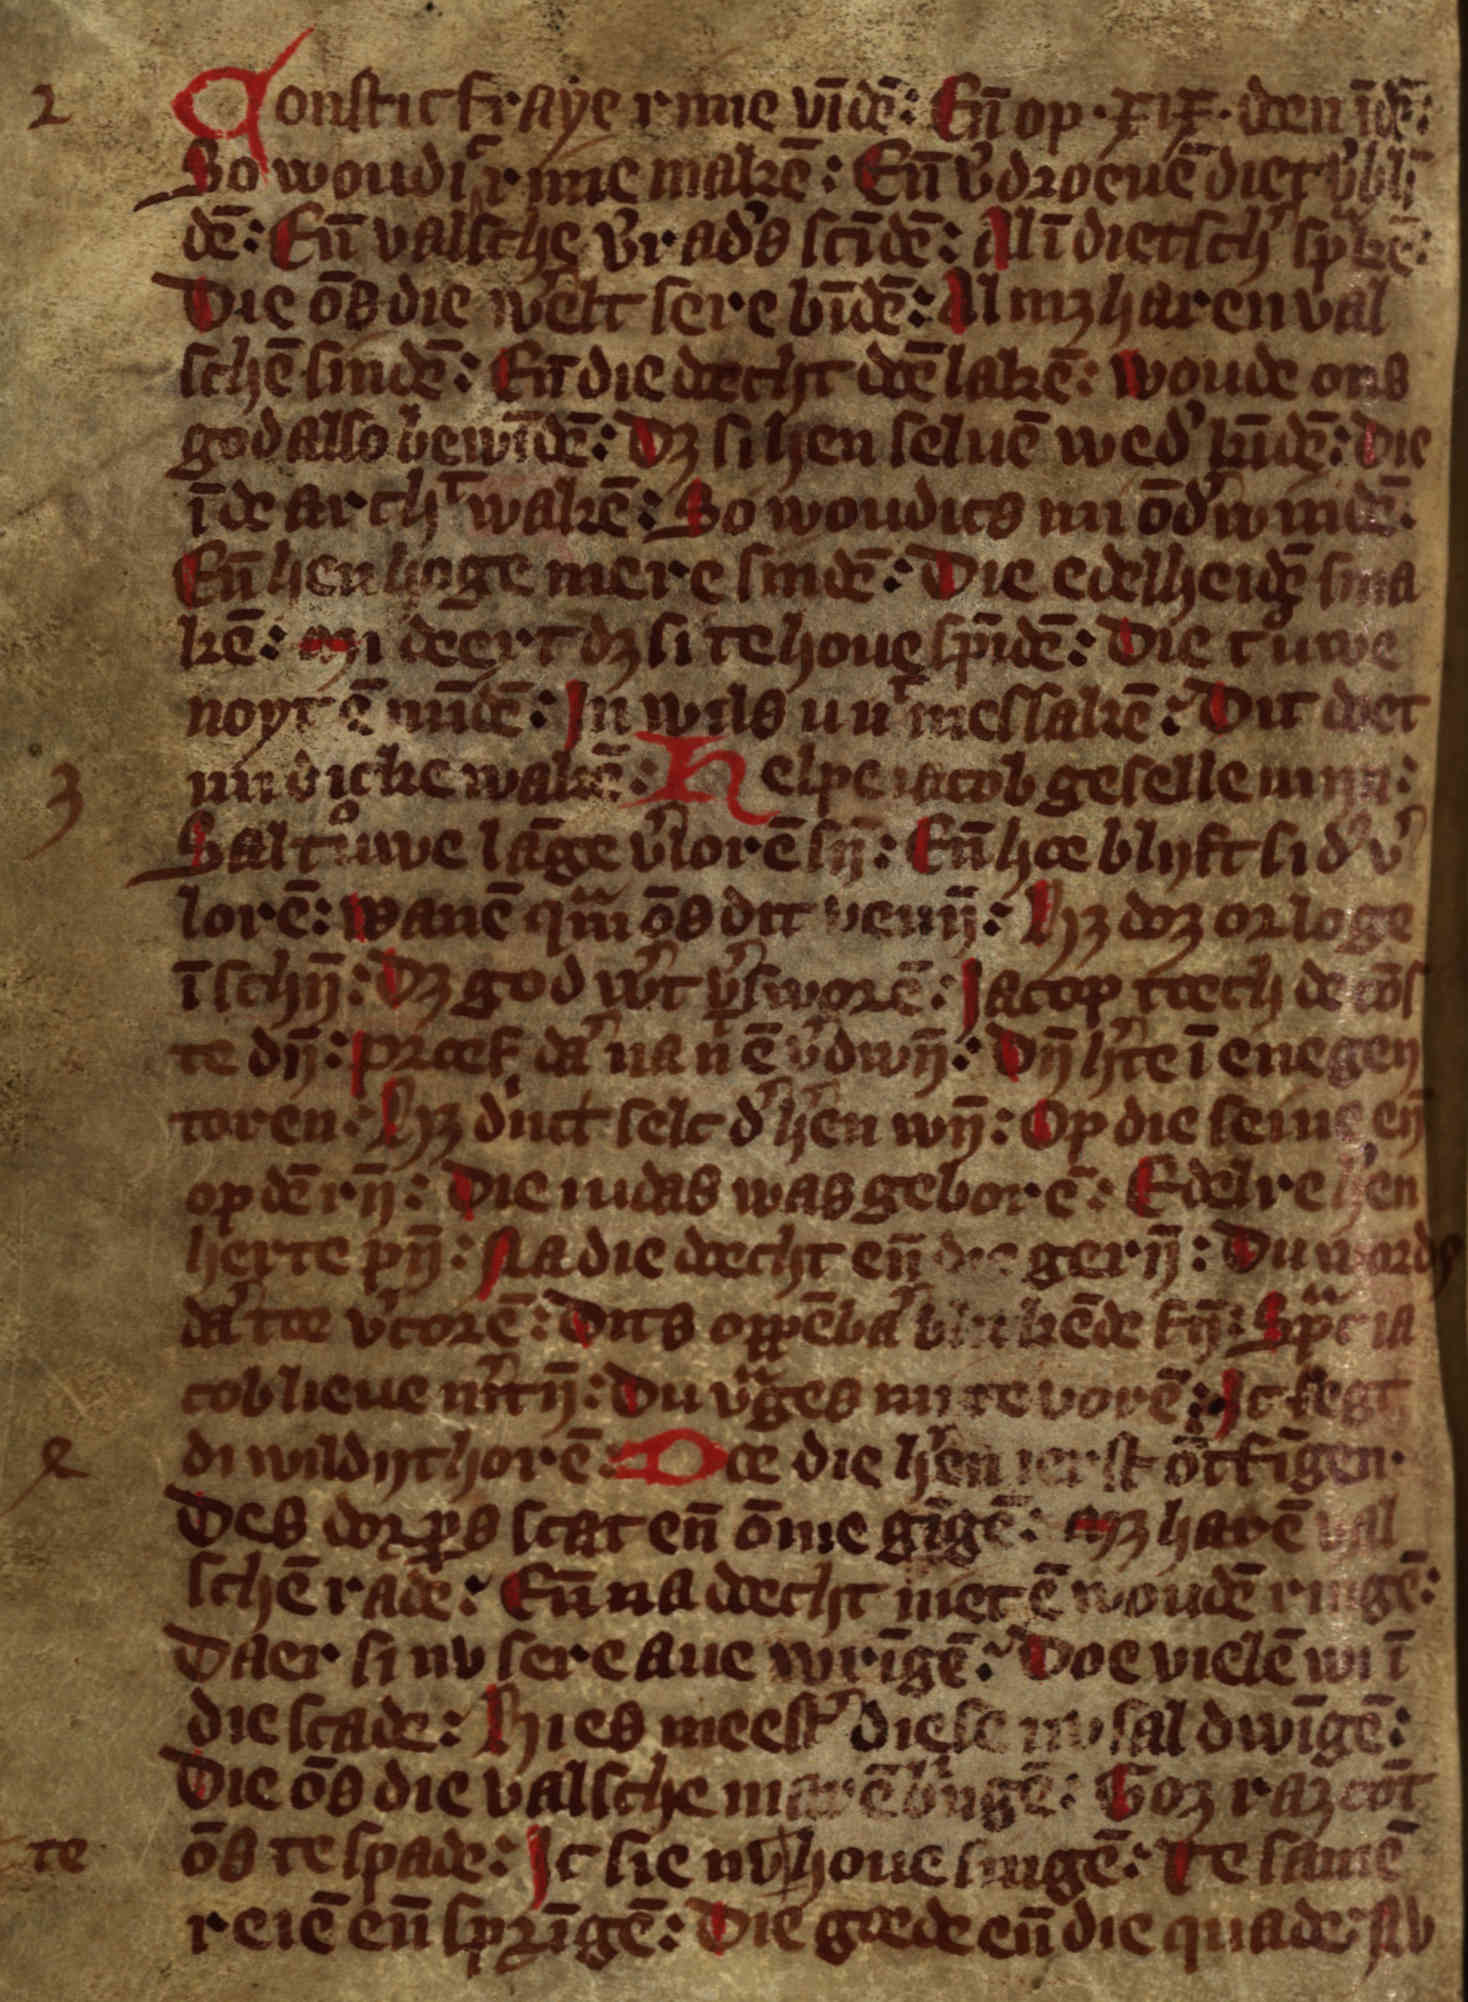 2
Constic fraye rime vīdē: Eñ op · xix · doen īdē:
So woudic rime makē: Eñ v'droeuē diet v'bli
dē: Eñ valsche v'rad's scīdē: Al ī dietsch' sp'kē:
Die ōs die w'elt sere bīdē: Al mȝ haren val
schē sindē: Eñ die doecht doē lakē: Woude ons
god also bewīdē: Dȝ si hen seluē wed' kīdē: Die
ī de arch't wakē: So woudics mi ōd'windē:
Eñ hen hoge mere sindē: Die edelheidē sma
kē: Mi deert dȝ si te houe sp̄idē: Die t'uwe
noyt ē mīdē: In wils nu n't messakē: Dit doet
mi sicke wakē: Helpe iacob geselle min:
Sal t'uwe lāge v'lorē sij̄: Eñ hoe blijft si d' v'
lorē: Wanē quā ōs dit venij̄: Hȝ doȝ orloge
ī schij̄: Dȝ god w't v'sworē: Jacop toech de cōs
te dij̄: Proef da' na n't ē v'dwij̄: Dij̄ h'te ī enegen
toren: Hȝ dūct selc d' h'en wij̄: Op die seine eñ
op dē rij̄: Die iudas was geborē: Edelre h'en
herte pij̄: Na die doecht eñ die gerij̄: Du words
da' toe v'corē: Dits oppēba' blikēde fij̄: Sp'c ia
cob lieue m'tij̄: Du v'ges mi te vorē: Ic segt
3
di wildijt horē: Doe die h'en ierst ōtfīgen
e
Des dorpers scat eñ ōme gīgē: Mȝ harē val
schē rade: Eñ na doecht niet ē woudē ringē:
Daer si nv sere aue wrīgē: Doe vielē wi ī
die scade: Hi es meest' diese nv sal dwīgē:
Die ōs die valsche marē b'ngē: Goȝ raȝ cōt
te
ōs te spade: Ic sie nv houe singē: Te samē
reiē eñ sprīgē: Die goede eñ die quade: Nv